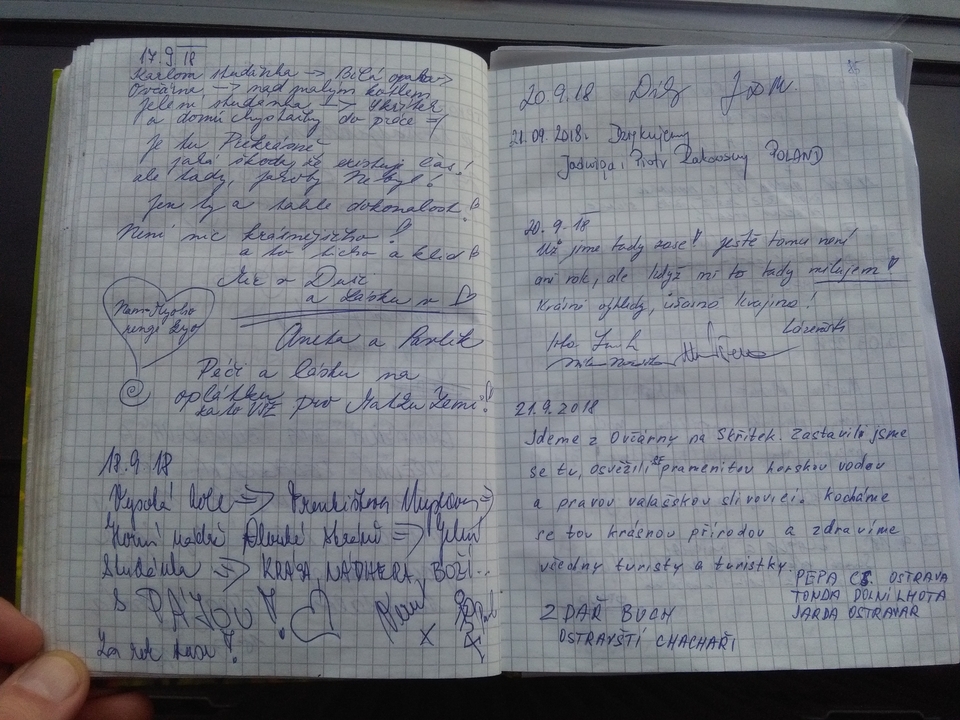 17.9 18
Karlova studánka → Bílá opava →
Ovčárna → nad malým kotlem
jelení studánka → Skřítek
a domů do práce
Je tu Překrásně
jaká škoda že existuje čas!
ale tady, jakoby nebyl!
Jen ty a tahle dokonalost!
Není nic krásnějšího!
a to ticho a klid
Mír v Duši
a Lásku v
Aneta a Pavlík
Péči a lásku na
oplátku
za to VŠE pro Matku Zemi!
18.9.18
Vysoká hole ⇒ Františkova Myslivna ⇒
Horní nádrž Dlouhé Stráně ⇒ Jelení
Studánka ⇒ KRÁSA, NÁDHERA, BOŽÍ...
S PÁJOU!
Za rok zase!
85
20.9.18 Díky
21.09.2018. Dziękujemy
Jadwiga i Piotr Rakowscy POLAND
20.9.18
Už jsme tady zase! ještě tomu není
ani rok, ale když mi to tady milujem!
Krásné výhledy, úžasná krajina!
21.9.2018
Jdeme z Ovčárny na Skřítek. Zastavili jsme
se tu, osvěžili se pramenitou horskou vodou
a pravou valašskou slivovicí. Kocháme
se tou krásnou přírodou a zdravíme
všechny turisty a turistky.
PEPA OSTRAVA
TONDA DOLNÍ LHOTA
JARDA OSTRAVAR
ZDAŘ BUCH
OSTRAVŠTÍ CHACHAŘI